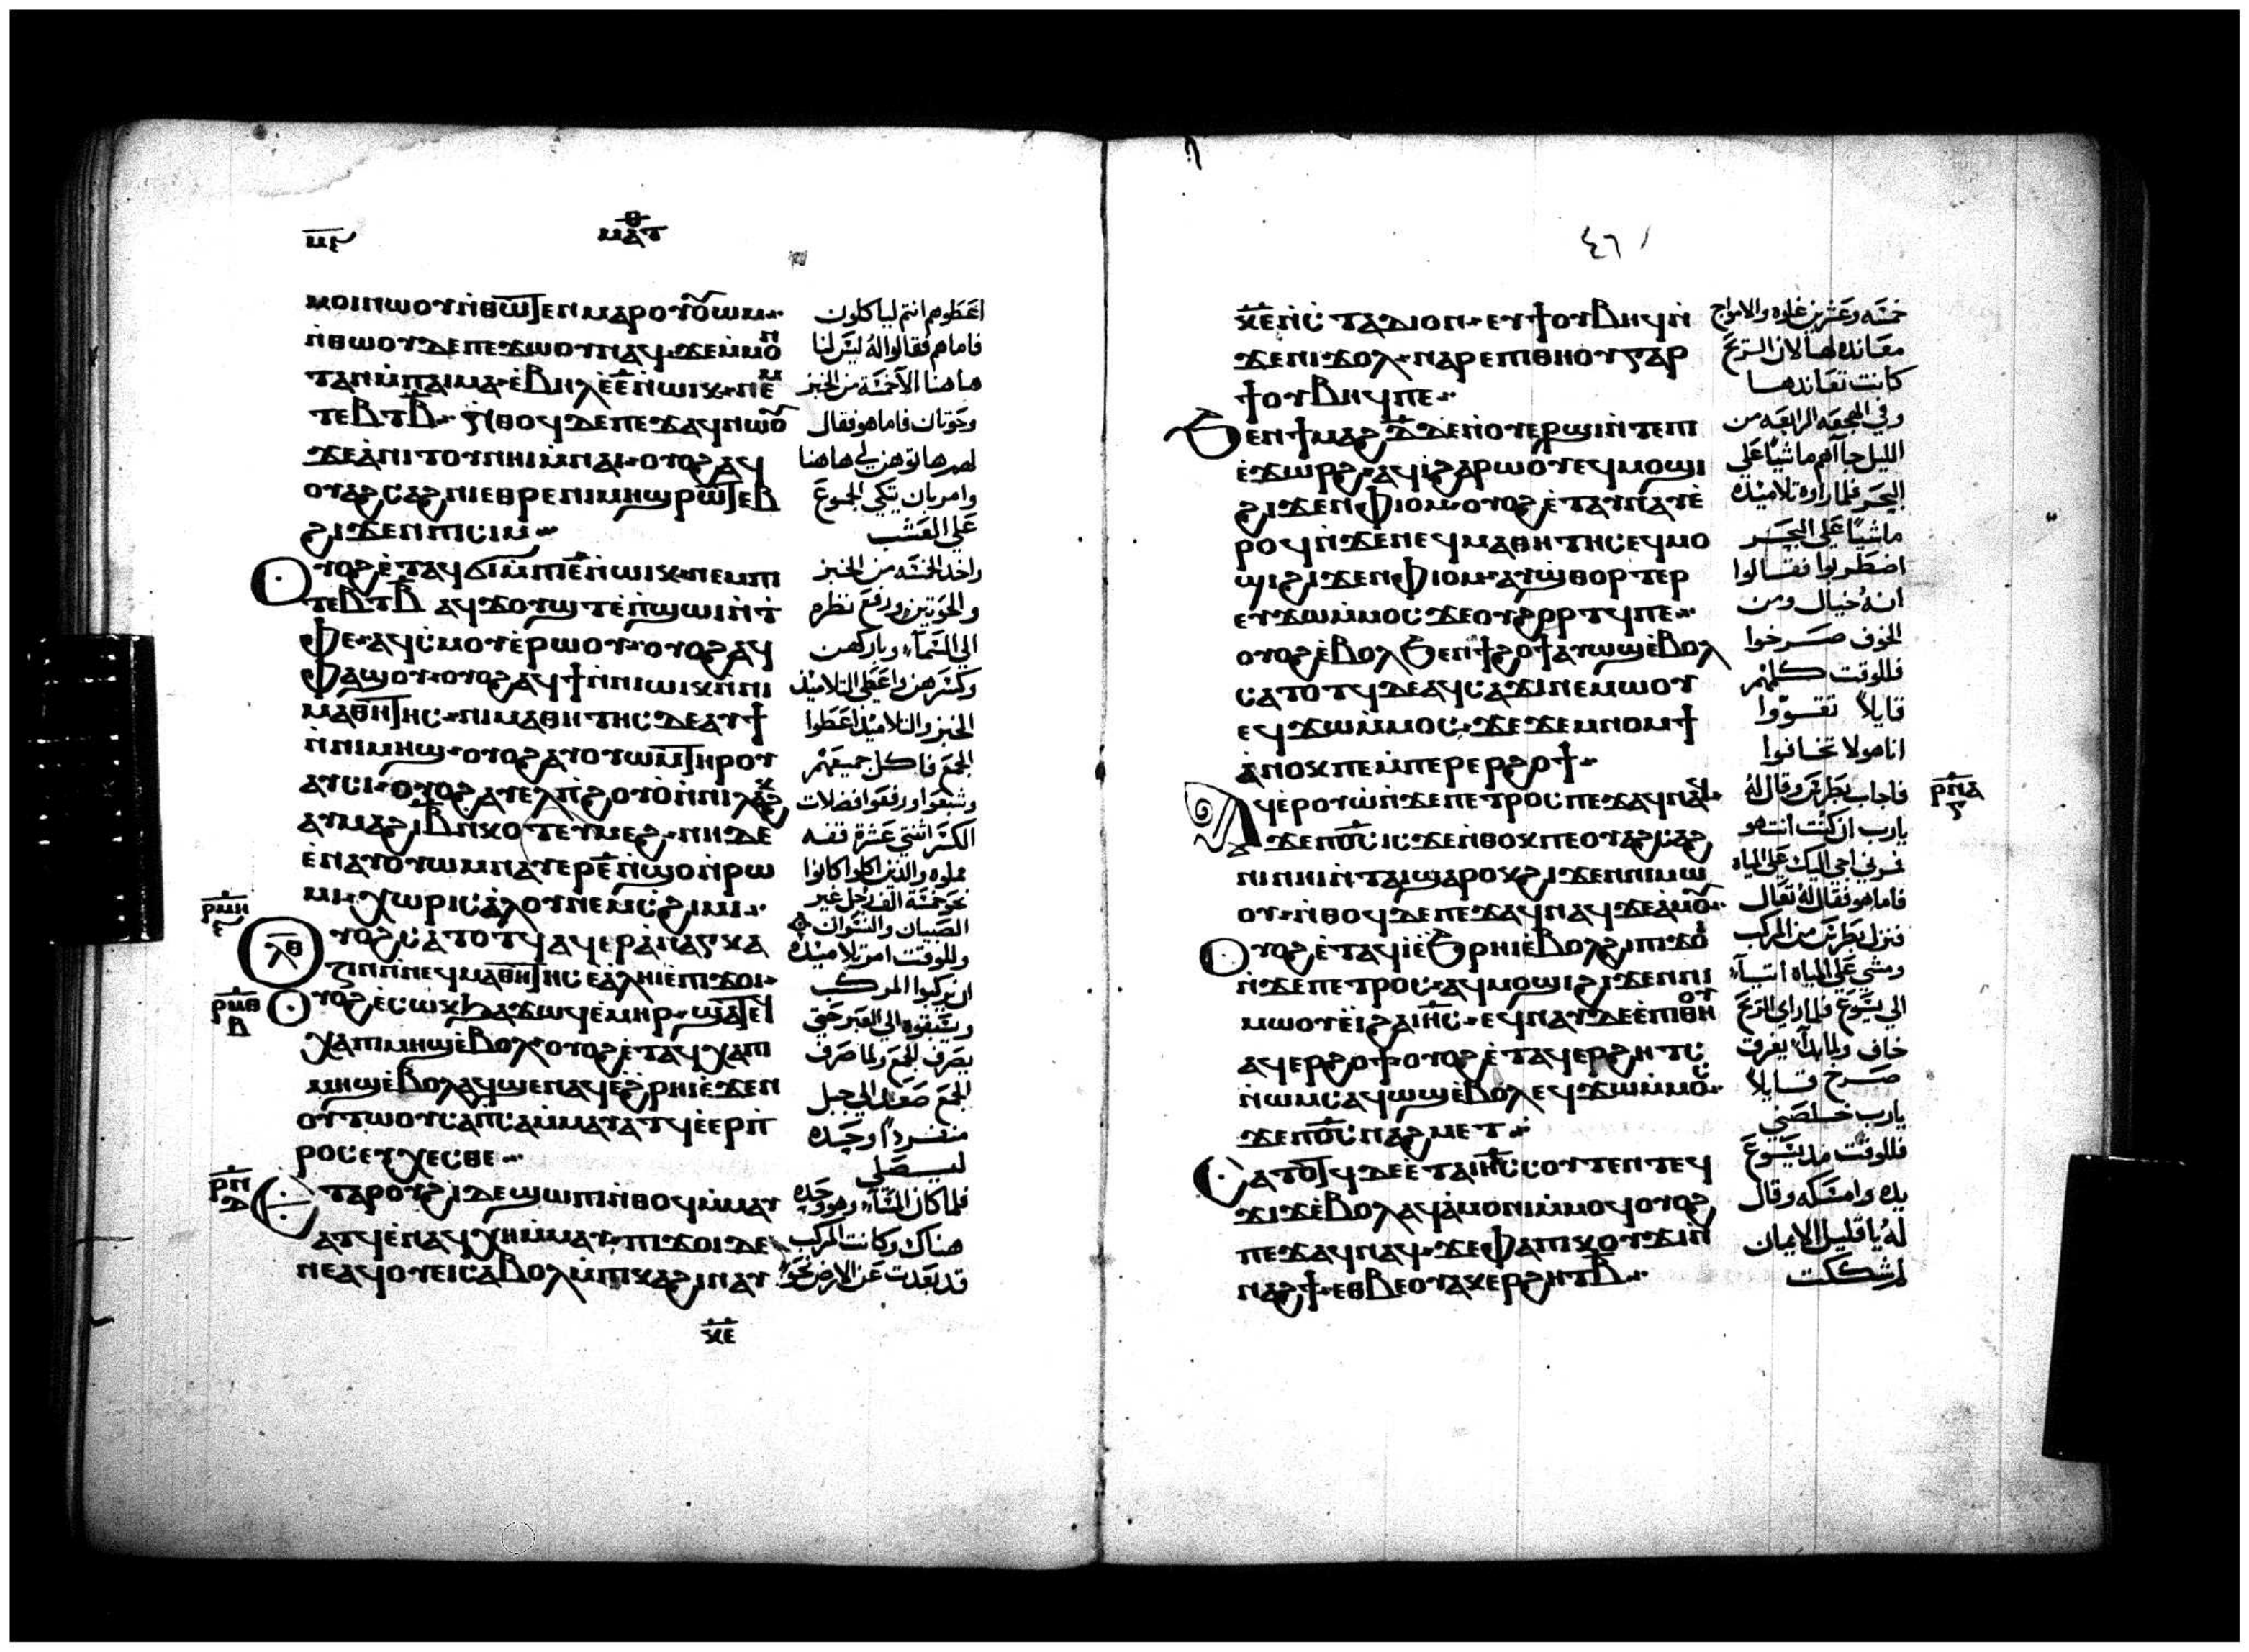 ⲙ̅ⲋ̅
ⲙⲁⲧⲑ
ⲙⲟⲓⲛⲱⲟⲩⲛ̀ⲑⲱⲧⲉⲛⲙⲁⲣⲟⲩⲟⲩⲱⲙ
ⲛ̀ⲑⲱⲟⲩⲇⲉⲡⲉϫⲱⲟⲩⲛⲁϥϫⲉⲙ̀ⲙⲟⲛ
ⲧⲁⲛⲙ̀ⲡⲁⲓⲙⲁⲉ̀ⲃⲏⲗⲉ̀ⲉ̅ⲛ̀ⲱⲓⲕⲛⲉⲙ
ⲧⲉⲃⲧⲃ̅ ⲛ̀ⲑⲟϥⲇⲉⲡⲉϫⲁϥⲛⲱⲟⲩ
ϫⲉⲁ̀ⲛⲓⲧⲟⲩⲛⲏⲓⲙ̀ⲛⲁⲓⲟⲩⲟϩⲁϥ
ⲟⲩⲁϩⲥⲁϩⲛⲓⲉⲑⲣⲉⲛⲓⲙⲏϣⲣⲱⲧⲉⲃ
ϩⲓϫⲉⲛⲡⲓⲥⲓⲙ
ⲟⲩⲟϩⲉ̀ⲧⲁϥϭⲓⲙ̀ⲡⲓⲉ̅ⲛ̀ⲱⲓⲕⲛⲉⲙⲡⲓ
ⲧⲉⲃⲧⲃ̅ ⲁϥϫⲟⲩϣⲧⲉ̀ⲡ̀ϣⲱⲓⲛ̀ⲧ
ⲫⲉⲁϥⲥ̀ⲙⲟⲩⲉ̀ⲣⲱⲟⲩⲟⲩⲟϩⲁϥ
ⲫⲁϣⲟⲩⲟⲩⲟϩⲁϥϯⲛ̀ⲛⲓⲱⲓⲕⲛ̀ⲛⲓ
ⲙⲁⲑⲏⲧⲏⲥⲛⲓⲙⲁⲑⲏⲧⲏⲥⲇⲉⲁⲩϯ
ⲛ̀ⲛⲓⲙⲏϣⲟⲩⲟϩⲁⲩⲟⲩⲱⲙⲧⲏⲣⲟⲩ
ⲁⲩⲥⲓⲟⲩⲟϩⲁⲩⲉⲗⲡ̀ϩⲟⲩⲟ̀ⲛ̀ⲛⲓⲗⲁⲕϩ
ⲁⲩⲙⲁϩⲓ̅ⲃ̅ⲛ̀ⲕⲟⲧⲉⲩⲙⲉϩⲛⲏⲇⲉ
ⲉ̀ⲛⲁⲩⲟⲩⲱⲙⲛⲁⲩⲉⲣⲉ̅ⲛ̀ϣⲟⲛ̀ⲣⲱ
ⲙⲓⲭⲱⲣⲓⲥⲁ̀ⲗⲟⲩⲛⲉⲙⲥ̀ϩⲓⲙⲓ
ⲣ̅ⲙ̅ⲏ̅
ⲗ̅ⲑ̅
ⲟⲩⲟϩⲥⲁⲧⲟⲧϥⲁϥⲉⲣⲁ̀ⲛⲁⲅⲕⲁ
ⲍⲓⲛⲛ̀ⲛⲉϥⲙⲁⲑⲏⲧⲏⲥⲉⲁ̀ⲗⲏⲓⲉ̀ⲡⲓϫⲟⲓ
ⲣ̅ⲙ̅ⲑ̅
ⲃ
ⲟⲩⲟϩⲉ̀ⲥⲱⲕϧⲁϫⲱϥⲉ̀ⲙⲏⲣϣⲁⲧⲉϥ
ⲭⲁⲡⲓⲙⲏϣⲉ̀ⲃⲟⲗⲟⲩⲟϩⲉ̀ⲧⲁϥⲭⲁⲡⲓ
ⲙⲏϣⲉ̀ⲃⲟⲗⲁϥϣⲉⲛⲁϥⲉ̀ϩⲣⲏⲓⲉ̀ϫⲉⲛ
ⲟⲩⲧⲱⲟⲩⲥⲁⲡⲥⲁⲙ̀ⲙⲁⲩⲁⲧϥⲉ̀ⲉⲣⲡ̀
ⲣⲟⲥⲉⲩⲭⲉⲥⲑⲉ
ⲣ̅ⲛ̅
ⲇ
ⲉⲧⲁⲣⲟⲩϩⲓⲇⲉϣⲱⲡⲓⲛ̀ⲑⲟϥⲙ̀ⲙⲁⲩ
ⲁⲧϥⲉ̀ⲛⲁϥⲭⲏⲙ̀ⲙⲁⲩⲡⲓϫⲟⲓⲇⲉ
ⲛⲉⲁϥⲟⲩⲉⲓⲥⲁⲃⲟⲗⲙ̀ⲡⲓⲕⲁϩⲓⲛⲁⲩ
ⲕ̅ⲉ̅
اعطوهم انتم لياكلون
فاما هم فقالوا له ليس لنا
هاهنا الا خمسة من الخبز
وحوتان فاما هو فقال
لهم هاتوهن لي هاهنا
وامر بان يتكي الجموع
على العشب
واخذ الخمسة من الخبز
والحوتين ورفع نظره
الى السماء وباركهن
وكسرهن واعطى التلاميذ
الخبز والتلاميذ اعطوا
الجمع فاكل جميعهم
وشبعوا ورفعوا فضلات
الكسر اثنتي عشرة قفه
مملوه والذين اكلوا كانوا
نحو خمسة الف رجل غير
الصبيان والنسوان
وللوقت امر تلاميذه
ان يركبوا المركب
ويسبقوه الى العبر حتى
يصرف الجمع ولما صرف
الجمع صعد الى جبل
منفردًا وحده
ليصلي
فلما كان المساء وهو وحده
هناك وكانت المركب
قد بعدت عن الارض نحو
٤٦
ⲕ̅ⲉ̅ⲛ̀ⲥ̀ⲧⲁⲇⲓⲟⲛⲉⲩϯⲟⲩⲃⲏϥⲛ̀
ϫⲉⲛⲓϫⲟⲗⲛⲁⲣⲉⲡⲓⲑⲏⲟⲩⲅⲁⲣ
ϯⲟⲩⲃⲏϥⲡⲉ
ϧⲉⲛϯⲙⲁϩⲇ̅ⲇⲉⲛ̀ⲟⲩⲉⲣϣⲓⲛ̀ⲧⲉⲡⲓ
ⲉ̀ϫⲱⲣϩⲁϥⲓ̀ϩⲁⲣⲱⲟⲩⲉϥⲙⲟϣⲓ
ϩⲓϫⲉⲛⲫⲓⲟⲙⲟⲩⲟϩⲉ̀ⲧⲁⲩⲛⲁⲩⲉ̀
ⲣⲟϥⲛ̀ϫⲉⲛⲉϥⲙⲁⲑⲏⲧⲏⲥⲉϥⲙⲟ
ϣⲓϩⲓϫⲉⲛⲫⲓⲟⲙⲁⲩϣ̀ⲑⲟⲣⲧⲉⲣ
ⲉⲩϫⲱⲙ̀ⲙⲟⲥϫⲉⲟⲩϩⲟⲣⲧϥⲡⲉ
ⲟⲩⲟϩⲉ̀ⲃⲟⲗϧⲉⲛϯϩⲟϯⲁⲩⲱϣⲉ̀ⲃⲟⲗ
ⲥⲁⲧⲟⲧϥⲇⲉⲁϥⲥⲁϫⲓⲛⲉⲙⲱⲟⲩ
ⲉϥϫⲱⲙ̀ⲙⲟⲥϫⲉϫⲉⲙⲛⲟⲙϯ
ⲁ̀ⲛⲟⲕⲡⲉⲙ̀ⲡⲉⲣⲉⲣϩⲟϯ
ⲁϥⲉ̀ⲣⲟⲩⲱ̀ⲛ̀ϫⲉⲡⲉⲧⲣⲟⲥⲡⲉϫⲁϥⲛⲁϥ
ϫⲉⲡϭⲥⲓⲥϫⲉⲛ̀ⲑⲟⲕⲡⲉⲟⲩⲁϩⲥⲁϩ
ⲛⲓⲛⲏⲓⲛ̀ⲧⲁⲓϣⲁⲣⲟⲕϩⲓϫⲉⲛⲛⲓⲙⲱ
ⲟⲩⲛ̀ⲑⲟϥⲇⲉⲡⲉϫⲁϥⲛⲁϥϫⲉⲁ̀ⲙⲟⲩ
ⲟⲩⲟϩⲉ̀ⲧⲁϥⲓ̀ⲉ̀ϧⲣⲏⲓⲉ̀ⲃⲟⲗϩⲓⲡⲓϫⲟⲓ
ⲛ̀ϫⲉⲡⲉⲧⲣⲟⲥⲁϥⲙⲟϣⲓϩⲓϫⲉⲛⲛⲓ
ⲙⲱⲟⲩⲉ̀ⲓ̀ϩⲁⲓⲏ̅ⲥ̅ⲉϥⲛⲁⲩⲇⲉⲉ̀ⲡⲓⲑⲏⲟⲩ
ⲁϥⲉⲣϩⲟϯⲟⲩⲟϩⲉ̀ⲧⲁϥⲉⲣϩⲏⲧⲥ
ⲛ̀ⲱⲙⲥⲁϥⲱϣⲉ̀ⲃⲟⲗⲉϥϫⲱⲙ̀ⲙⲟⲥ
ϫⲉⲡϭⲥⲛⲁϩⲙⲉⲧ
ⲥⲁⲧⲟⲧϥⲇⲉⲉ̀ⲧⲁⲓⲏ̅ⲥ̅ⲥⲟⲩⲧⲉⲛⲧⲉϥ
ϫⲓϫⲉ̀ⲃⲟⲗⲁϥⲁ̀ⲙⲟⲛⲓⲙ̀ⲙⲟϥⲟⲩⲟϩ
ⲡⲉϫⲁϥⲛⲁϥϫⲉⲫⲁⲡⲓⲕⲟⲩϫⲓⲛ̀
ⲛⲁϩϯⲉⲑⲃⲉⲟⲩⲁⲕⲉⲣϩⲏⲧⲃ̅
خمسه وعشرين غلوه والامواج
معانده لها لان الريح
كانت تعاندها
وفي الهجعه الرابعه من
الليل جا اليهم ماشيًا على
البحر فلما راوه تلاميذه
ماشيًا على البحر
اضطربوا فقالوا
انه خيال ومن
الخوف صرخوا
فللوقت كلمهم
قايلاً تقووا
انا هو لا تخافوا
فاجاب بطرس وقال له
يارب ان كنت انت هو
فمرني اجي اليك على المياه
فاما هو فقال له تعال
فنزل بطرس من المركب
ومشى على المياه اتيا
الى يسوع فلما راى الريح
خاف ولما بدأ يغرق
صرخ قايلاً
يارب خلصني
فللوقت مد يسوع
يده وامسكه وقال
له يا قليل الايمان
لم شككت
ⲣ̅ⲛ̅ⲁ̅